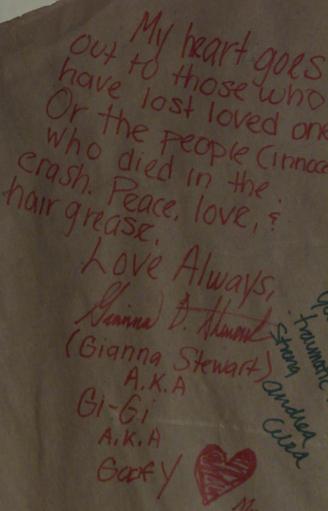 My heart goes
out to those who
have lost loved one
Or the people (innoc
who died in the
crash. Peace, love, &
hair grease.
Love Always,
Gianna D. Stewart
(Gianna Stewart)
A.K.A
Gi-Gi
A.K.A
Goofy
traumatic
strong andrea